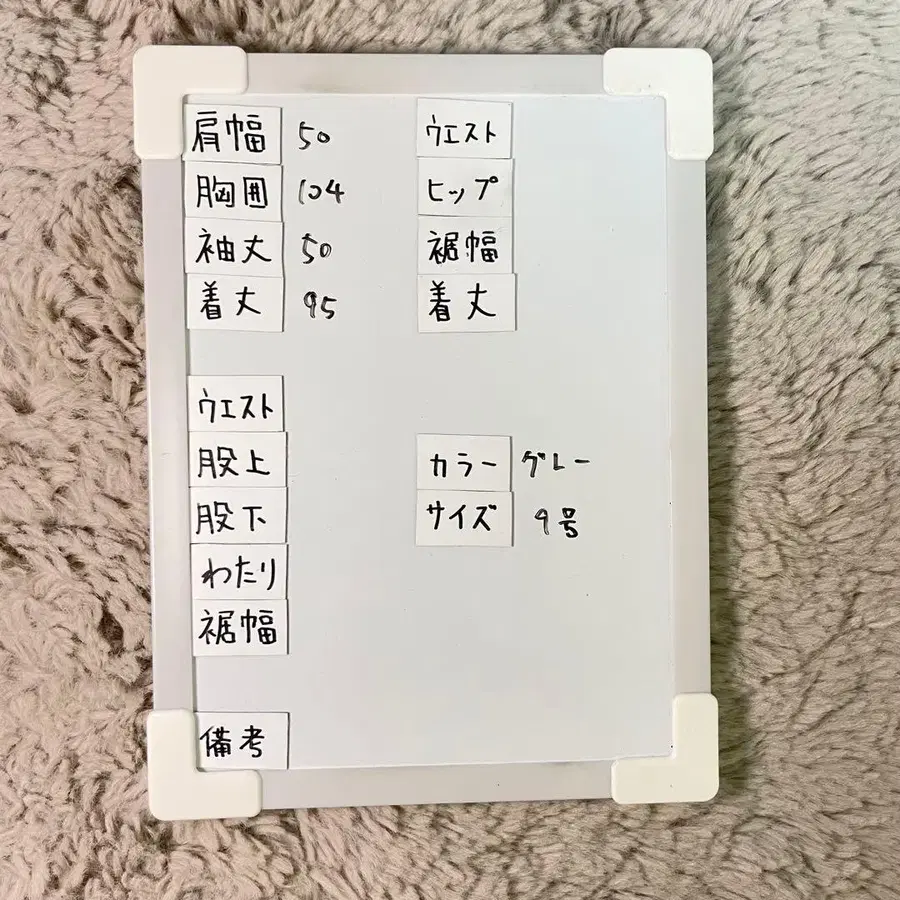 肩幅 50
胸囲 104
袖丈 50
着丈 95
ウエスト
ヒップ
裾幅
着丈
ウエスト
股上
股下
わたり
裾幅
カラー グレー
サイズ 9号
備考